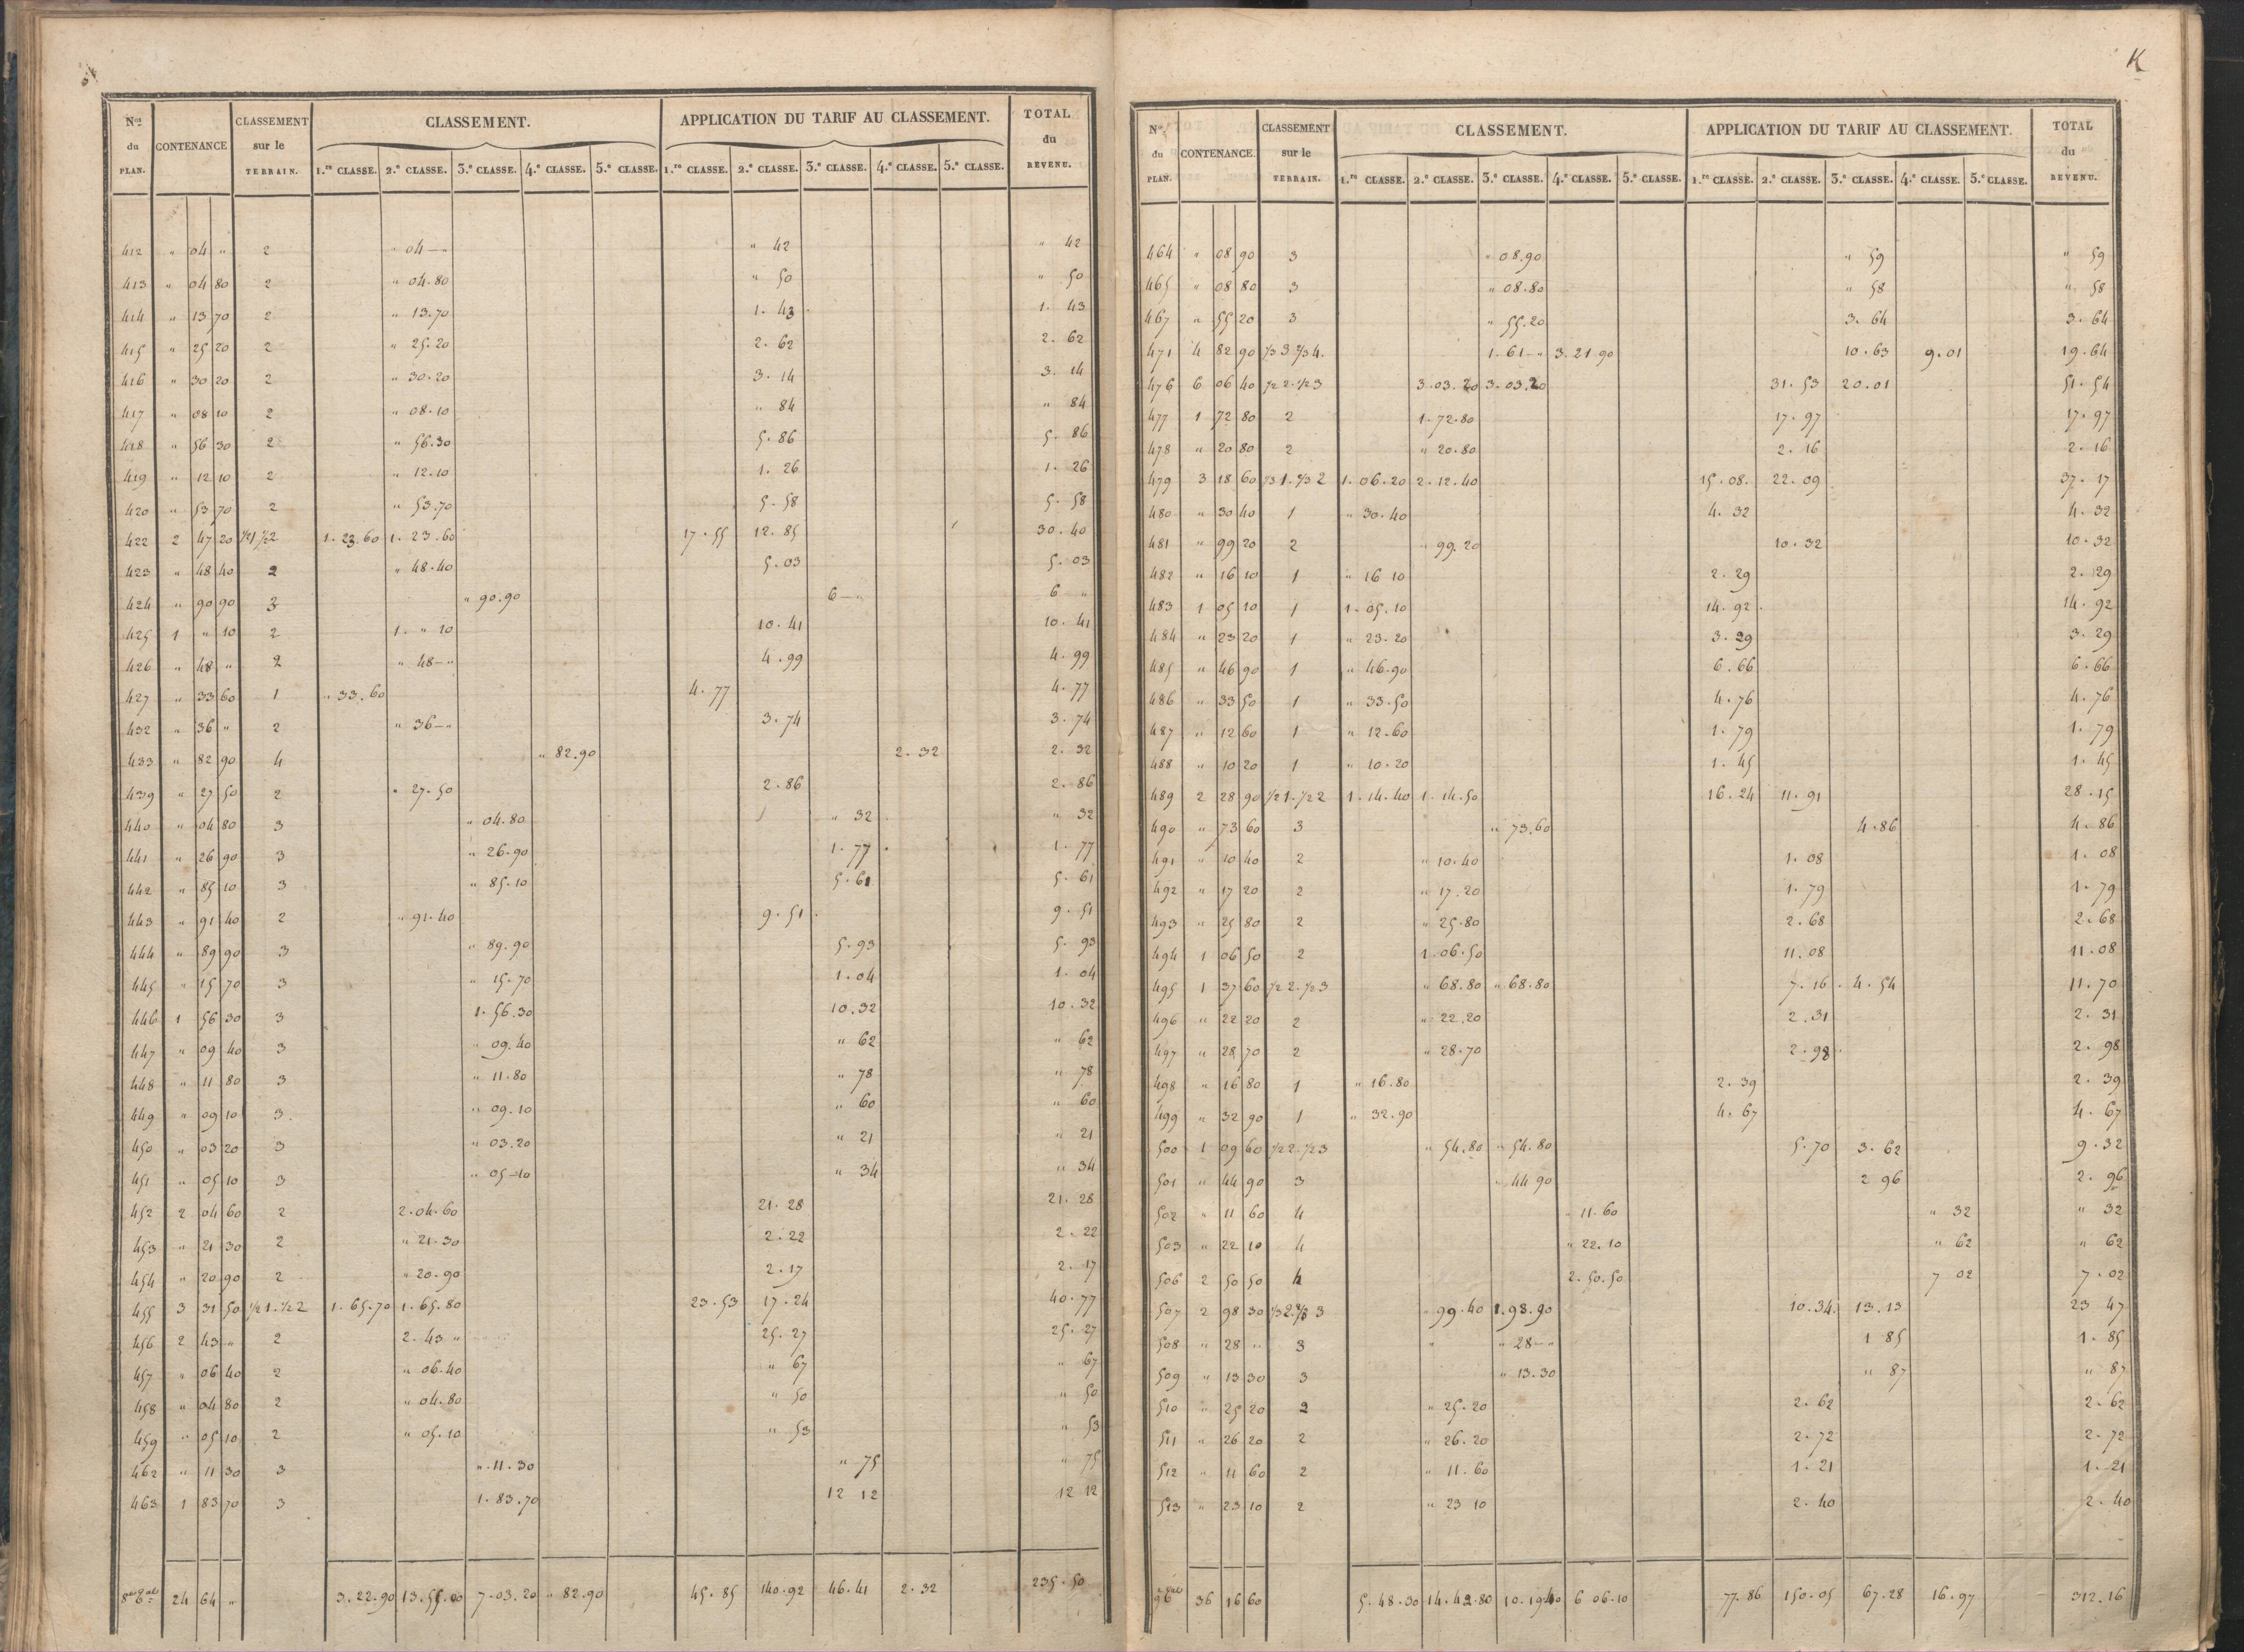 N.os du PLAN. CONTENANCE CLASSEMENT sur le TERRAIN. CLASSEMENT. APPLICATION DU TARIF AU CLASSEMENT. TOTAL du REVENU.
1.re CLASSE. 2.e CLASSE. 3.e CLASSE. 4.e CLASSE. 5.e CLASSE. 1.re CLASSE. 2.e CLASSE. 3.e CLASSE. 4.e CLASSE. 5.e CLASSE.
412 " 04 " 2 " 04 — " " 42 " 42
413 " 04 80 2 " 04.80 " 50 " 50
414 " 13 70 2 " 13.70 1. 43 1. 43
415 " 25 20 2 " 25.20 2. 62 2. 62
416 " 30 20 2 " 30.20 3. 14 3. 14
417 " 08 10 2 " 08.10 " 84 " 84
418 " 56 30 2 " 56.30 5. 86 5. 86
419 " 12 10 2 " 12.10 1. 26 1. 26
420 " 53 70 2 " 53.70 5. 58 5. 58
422 2 47 20 1/2 1 1/2 2 1. 23.60 1. 23.60 17. 55 12. 85 30. 40
423 " 48 40 2 " 48.40 5. 03 5. 03
424 " 90 90 3 " 90.90 6 — " 6 "
425 1 " 10 2 1. " 10 10. 41 10. 41
426 " 48 " 2 " 48 — " 4. 99 4. 99
427 " 33 60 1 " 33.60 4. 77 4. 77
432 " 36 " 2 " 36 — " 3. 74 3. 74
433 " 82 90 4 " 82.90 2. 32 2. 32
439 " 27 50 2 " 27.50 2. 86 2. 86
440 " 04 80 3 " 04.80 " 32 " 32
441 " 26 90 3 " 26.90 1. 77 1. 77
442 " 85 10 3 " 85.10 5. 61 5. 61
443 " 91 40 2 " 91.40 9. 51 9. 51
444 " 89 90 3 " 89.90 5. 93 5. 93
445 " 15 70 3 " 15.70 1. 04 1. 04
446 1 56 30 3 1. 56.30 10. 32 10. 32
447 " 09 40 3 " 09.40 " 62 " 62
448 " 11 80 3 " 11.80 " 78 " 78
449 " 09 10 3 " 09.10 " 60 " 60
450 " 03 20 3 " 03.20 " 21 " 21
451 " 05 10 3 " 05 10 " 34 " 34
452 2 04 60 2 2. 04. 60 21. 28 21. 28
453 " 21 30 2 " 21.30 2. 22 2. 22
454 " 20 90 2 " 20.90 2. 17 2. 17
455 3 31 50 1/2 1. 1/2 2 1. 65.70 1. 65.80 23. 53 17. 24 40. 77
456 2 43 " 2 2. 43 " 25. 27 25. 27
457 " 06 40 2 " 06.40 " 67 " 67
458 " 04 80 2 " 04.80 " 50 " 50
459 " 05 10 2 " 05.10 " 53 " 53
462 " 11 30 3 " 11.30 " 75 " 75
463 1 83 70 3 1. 83.70 12 12 12 12
24 64 " 3. 22.90 13. 55.00 7. 03. 20 " 82.90 45. 85 140. 92 46. 41 2. 32 235. 50
K
N.os du PLAN. CONTENANCE. CLASSEMENT sur le TERRAIN. CLASSEMENT. APPLICATION DU TARIF AU CLASSEMENT. TOTAL du REVENU.
1.re CLASSE. 2.e CLASSE. 3.e CLASSE. 4.e CLASSE. 5.e CLASSE. 1.re CLASSE. 2.e CLASSE. 3.e CLASSE. 4.e CLASSE. 5.e CLASSE.
464 " 08 90 3 " 08.90 " 59 " 59
465 " 08 80 3 " 08.80 " 58 " 58
467 " 55 20 3 " 55.20 3. 64 3. 64
471 4 82 90 1/3 3 2/3 4. 1. 61 — " 3. 21. 90 10. 63 9. 01 19. 64
476 6 06 40 1/2 2. 1/2 3 3. 03. 20 3. 03. 20 31. 53 20. 01 51. 54
477 1 72 80 2 1. 72.80 17. 97 17. 97
478 " 20 80 2 " 20.80 2. 16 2. 16
479 3 18 60 1/3 1. 2/3 2 1. 06. 20 2. 12. 40 15. 08. 22. 09 37. 17
480 " 30 40 1 " 30. 40 4. 32 4. 32
481 " 99 20 2 " 99. 20 10. 32 10. 32
482 " 16 10 1 " 16 10 2. 29 2. 29
483 1 05 10 1 1. 05. 10 14. 92 14. 92
484 " 23 20 1 " 23. 20 3. 29 3. 29
485 " 46 90 1 " 46.90 6. 66 6. 66
486 " 33 50 1 " 33.50 4. 76 4. 76
487 " 12 60 1 " 12.60 1. 79 1. 79
488 " 10 20 1 " 10.20 1. 45 1. 45
489 2 28 90 1/2 1. 1/2 2 1. 14. 40 1. 14. 50 16. 24 11. 91 28. 15
490 " 73 60 3 " 73.60 4. 86 4. 86
491 " 10 40 2 " 10.40 1. 08 1. 08
492 " 17 20 2 " 17.20 1. 79 1. 79
493 " 25 80 2 " 25.80 2. 68 2. 68
494 1 06 50 2 1. 06. 50 11. 08 11. 08
495 1 37 60 1/2 2. 1/2 3 " 68.80 " 68.80 7. 16 4. 54 11. 70
496 " 22 20 2 " 22.20 2. 31 2. 31
497 " 28 70 2 " 28.70 2. 98 2. 98
498 " 16 80 1 " 16.80 2. 39 2. 39
499 " 32 90 1 " 32.90 4. 67 4. 67
500 1 09 60 1/2 2. 1/2 3 " 54.80 " 54.80 5. 70 3. 62 9. 32
501 " 44 90 3 " 44 90 2 96 2. 96
502 " 11 60 4 " 11. 60 " 32 " 32
503 " 22 10 4 " 22. 10 " 62 " 62
506 2 50 50 4 2. 50. 50 7 02 7. 02
507 2 98 30 1/3 2. 2/3 3 " 99. 40 1. 98. 90 10. 34. 13. 13 23 47
508 " 28 " 3 " " 28 — " 1 85 1. 85
509 " 13 30 3 " 13. 30 " 87 " 87
510 " 25 20 2 " 25. 20 2. 62 2. 62
511 " 26 20 2 " 26. 20 2. 72 2. 72
512 " 11 60 2 " 11. 60 1. 21 1. 21
513 " 23 10 2 " 23 10 2. 40 2. 40
36 16 60 5. 48. 30 14. 42. 80 10. 19 40 6 06. 10 77. 86 150. 05 67. 28 16. 97 312. 16